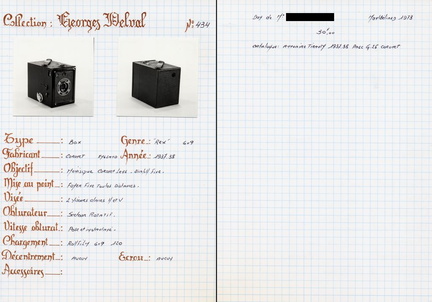 Collection: Georges Delval N° 434
Type: Box Genre: "Rex" 6x9
Fabricant: Coronet Année: 1937.38
Objectif: Menisque Coronet
Mise au point: Foyer Fixe toutes distances.
Visée: 2 Viseurs clairs H et V
Obturateur: Secteur Rotatif.
Vitesse obturat: Pose et instantané.
Chargement: Rollfilm 6x9 120
Décentrement: aucun Ecrou: aucun
Accessoires:
Don de Mr Montbéliard 1978
50,00
Catalogue: 1937.38